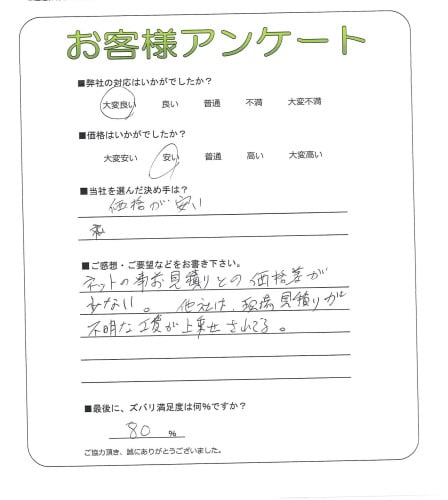 お客様アンケート
■弊社の対応はいかがでしたか?
大変良い 良い 普通 不満 大変不満
■価格はいかがでしたか?
大変安い 安い 普通 高い 大変高い
■当社を選んだ決め手は?
価格が安い
■ご感想・ご要望などをお書き下さい。
ネットの事前見積りとの価格差が
少ない。 他社は、現場見積りが
不明な工費が上乗せされてる。
■最後に、ズバリ満足度は何%ですか?
80 %
ご協力頂き、誠にありがとうございました。